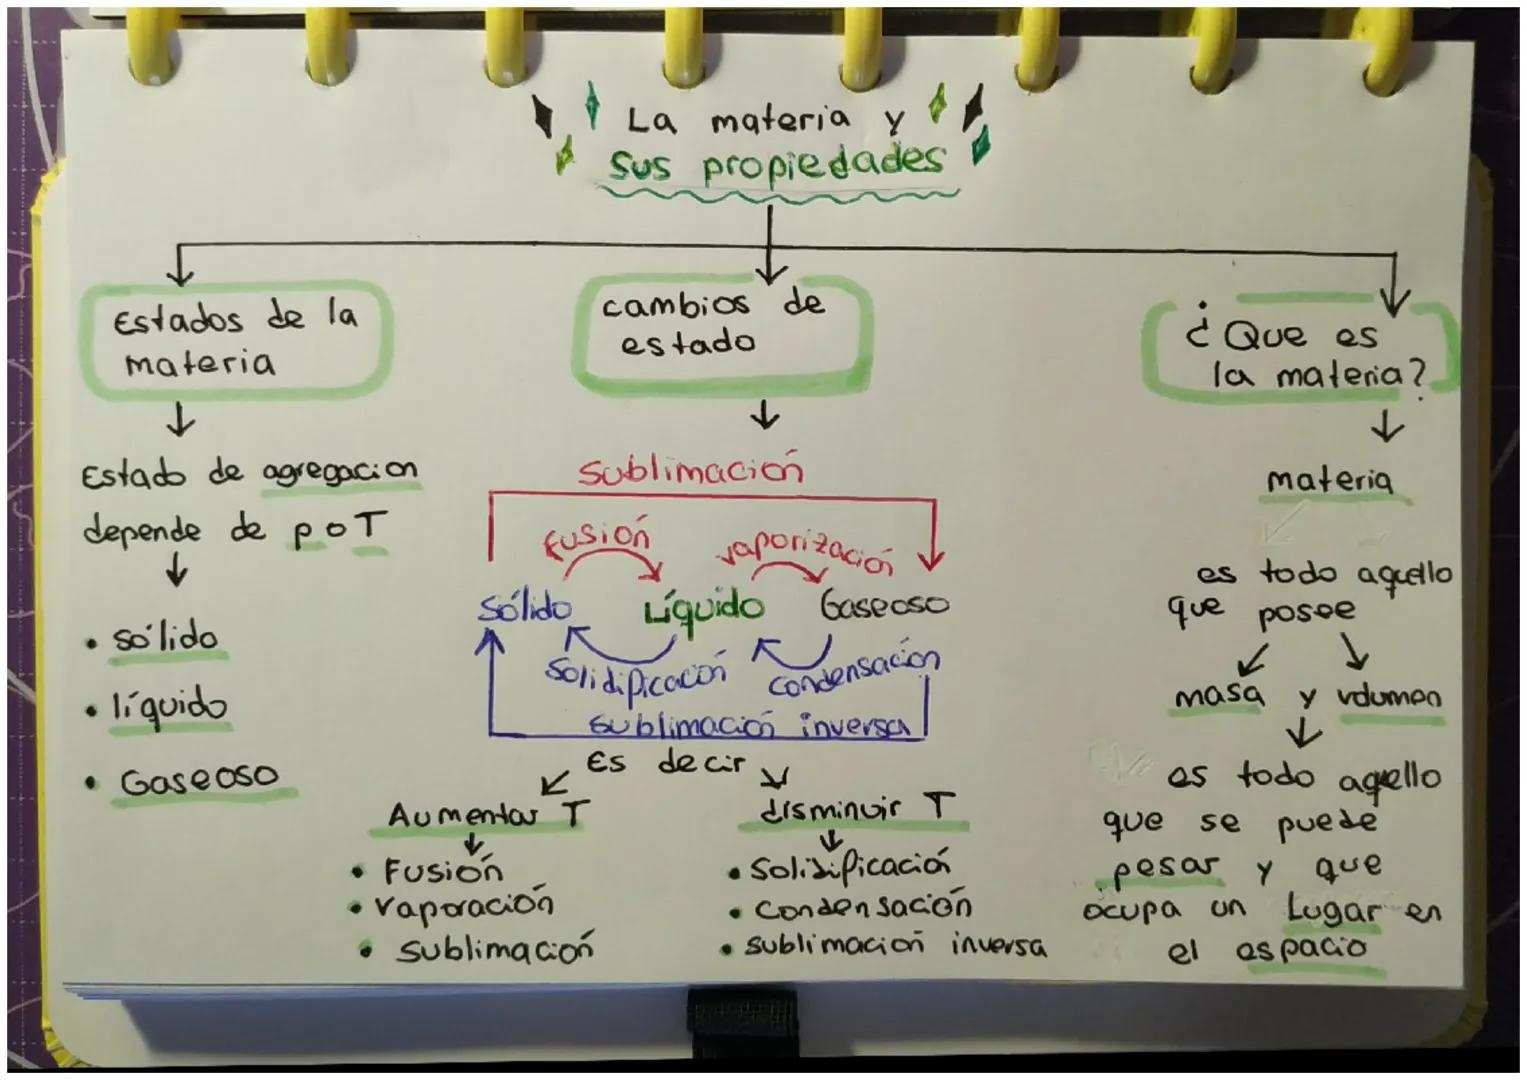 La materia y
sus propiedades
Estados de la
materia
Estado de agregacion
depende de p o T
• sólido
• líquido
• Gaseoso
cambios de
estado
Sublimación
fusión
vaporización
Sólido
Líquido
Gaseoso
Solidificación
condensación
sublimación inversa
Es decir
Aumentar T
• Fusión
• vaporación
• sublimación
disminuir T
• Solidificación
• condensación
• sublimación inversa
¿Que es
la materia?
materia
es todo aquello
que posee
masa y volumen
es todo aquello
que se puede
pesar y que
ocupa un lugar en
el espacio